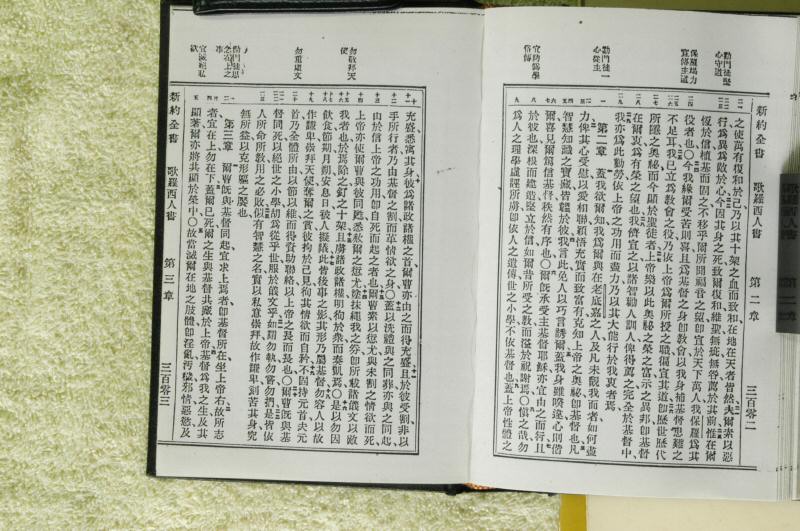 新約全書
歌羅西人書
第二章
三百零二
勸門徒堅心守道
保羅竭力宣傳主道
勸門徒一心從主
宜防異學俗傳
之使萬有復和於己乃以其十架之血而致和在地在天者皆然夫爾素以惡
行爲異爲敵於心今因其身之死致爾復和維聖無疵無咎薦於其前惟在爾
恆於信植基而固之不移乎爾所聞福音之望卽宣於天下萬人我保羅爲其
役者也〇今我緣爾受苦則喜且爲基督之身卽敎會以我身補基督患難之
不足耳我已立爲敎會之役乃依上帝爲爾所授之職徧宣其道卽歷世歷代
所隱之奧秘而今顯於聖徒者上帝樂以此奧秘之榮之富示之異邦卽基督
在爾衷爲有榮之望也我儕宣之以諸智勸人訓人俾得薦之完全於基督中
我亦爲此勤勞依上帝之功用而盡力乃以其大能行於我衷者焉
第二章 蓋我欲爾知我爲爾與在老底嘉之人及凡未覿我面者如何盡
力俾其心受慰以愛和聯穎悟充實而致富有克知上帝之奧秘卽基督也凡
智慧知識之寶藏皆韞於彼我言此免人以巧言誘爾蓋我身雖暌違心則偕
爾喜見爾篤信基督秩然有序也〇爾旣承受主基督耶穌亦宜由之而行且
於彼也深根而建造堅立於信如爾昔所受之敎而溢於祝謝焉〇愼之哉勿
爲人之理學虛誑所擄卽依人之遺傳世之小學不依基督也蓋上帝性體之
新約全書
歌羅西人書
第三章
三百零三
勿敬拜天使
勿重虛文
勸門徒思念在上之事
宜滅絕私欲
充盛悉寓其身彼爲諸政諸權之首爾曹亦由之而得充盛且於彼受割非以
手所行者乃由基督之割而革情欲之身〇蓋以洗禮與之同葬亦與之同起
由於信上帝之功用卽自死而起之者也爾曹素以愆尤與未割之情欲而死
上帝亦使爾曹與彼同甦悉赦爾之愆尤塗抹繩我之券卽所載諸儀文以敵
我者也於焉除之釘之十架且虜諸政諸權明徇於衆而奏凱焉〇是以勿因
飲食節期月朔安息日被人擬議此皆後事之影其形乃屬基督勿容人以故
作謙卑崇拜天使奪爾之賞彼拘於己見徇其情欲而自矜不因持元首夫元
首乃全體所由以節以維而得資助聯絡以上帝之長而長也〇爾曹旣與基
督同死以絕世之小學胡爲從乎世服於儀文乎如謂勿執勿嘗勿捫是皆依
人所命所敎用之必敗似有智慧之名實以私意崇拜故作謙卑刻苦其身究
無所益以克形軀之慾也
第三章 爾曹旣與基督同起宜求上焉者卽基督所在坐上帝右故所志
者宜在上勿在下蓋爾已死爾之生與基督共藏於上帝基督爲我之生及其
顯著爾亦將共顯於榮中〇故當滅爾在地之肢體卽淫亂汚穢邪情惡慾及